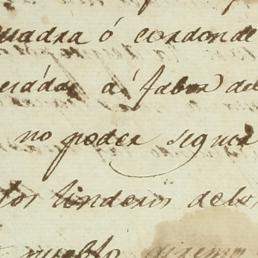 uadra ó cordonde
á fabor de
no poder seguir
tos linderos delos
pueblo